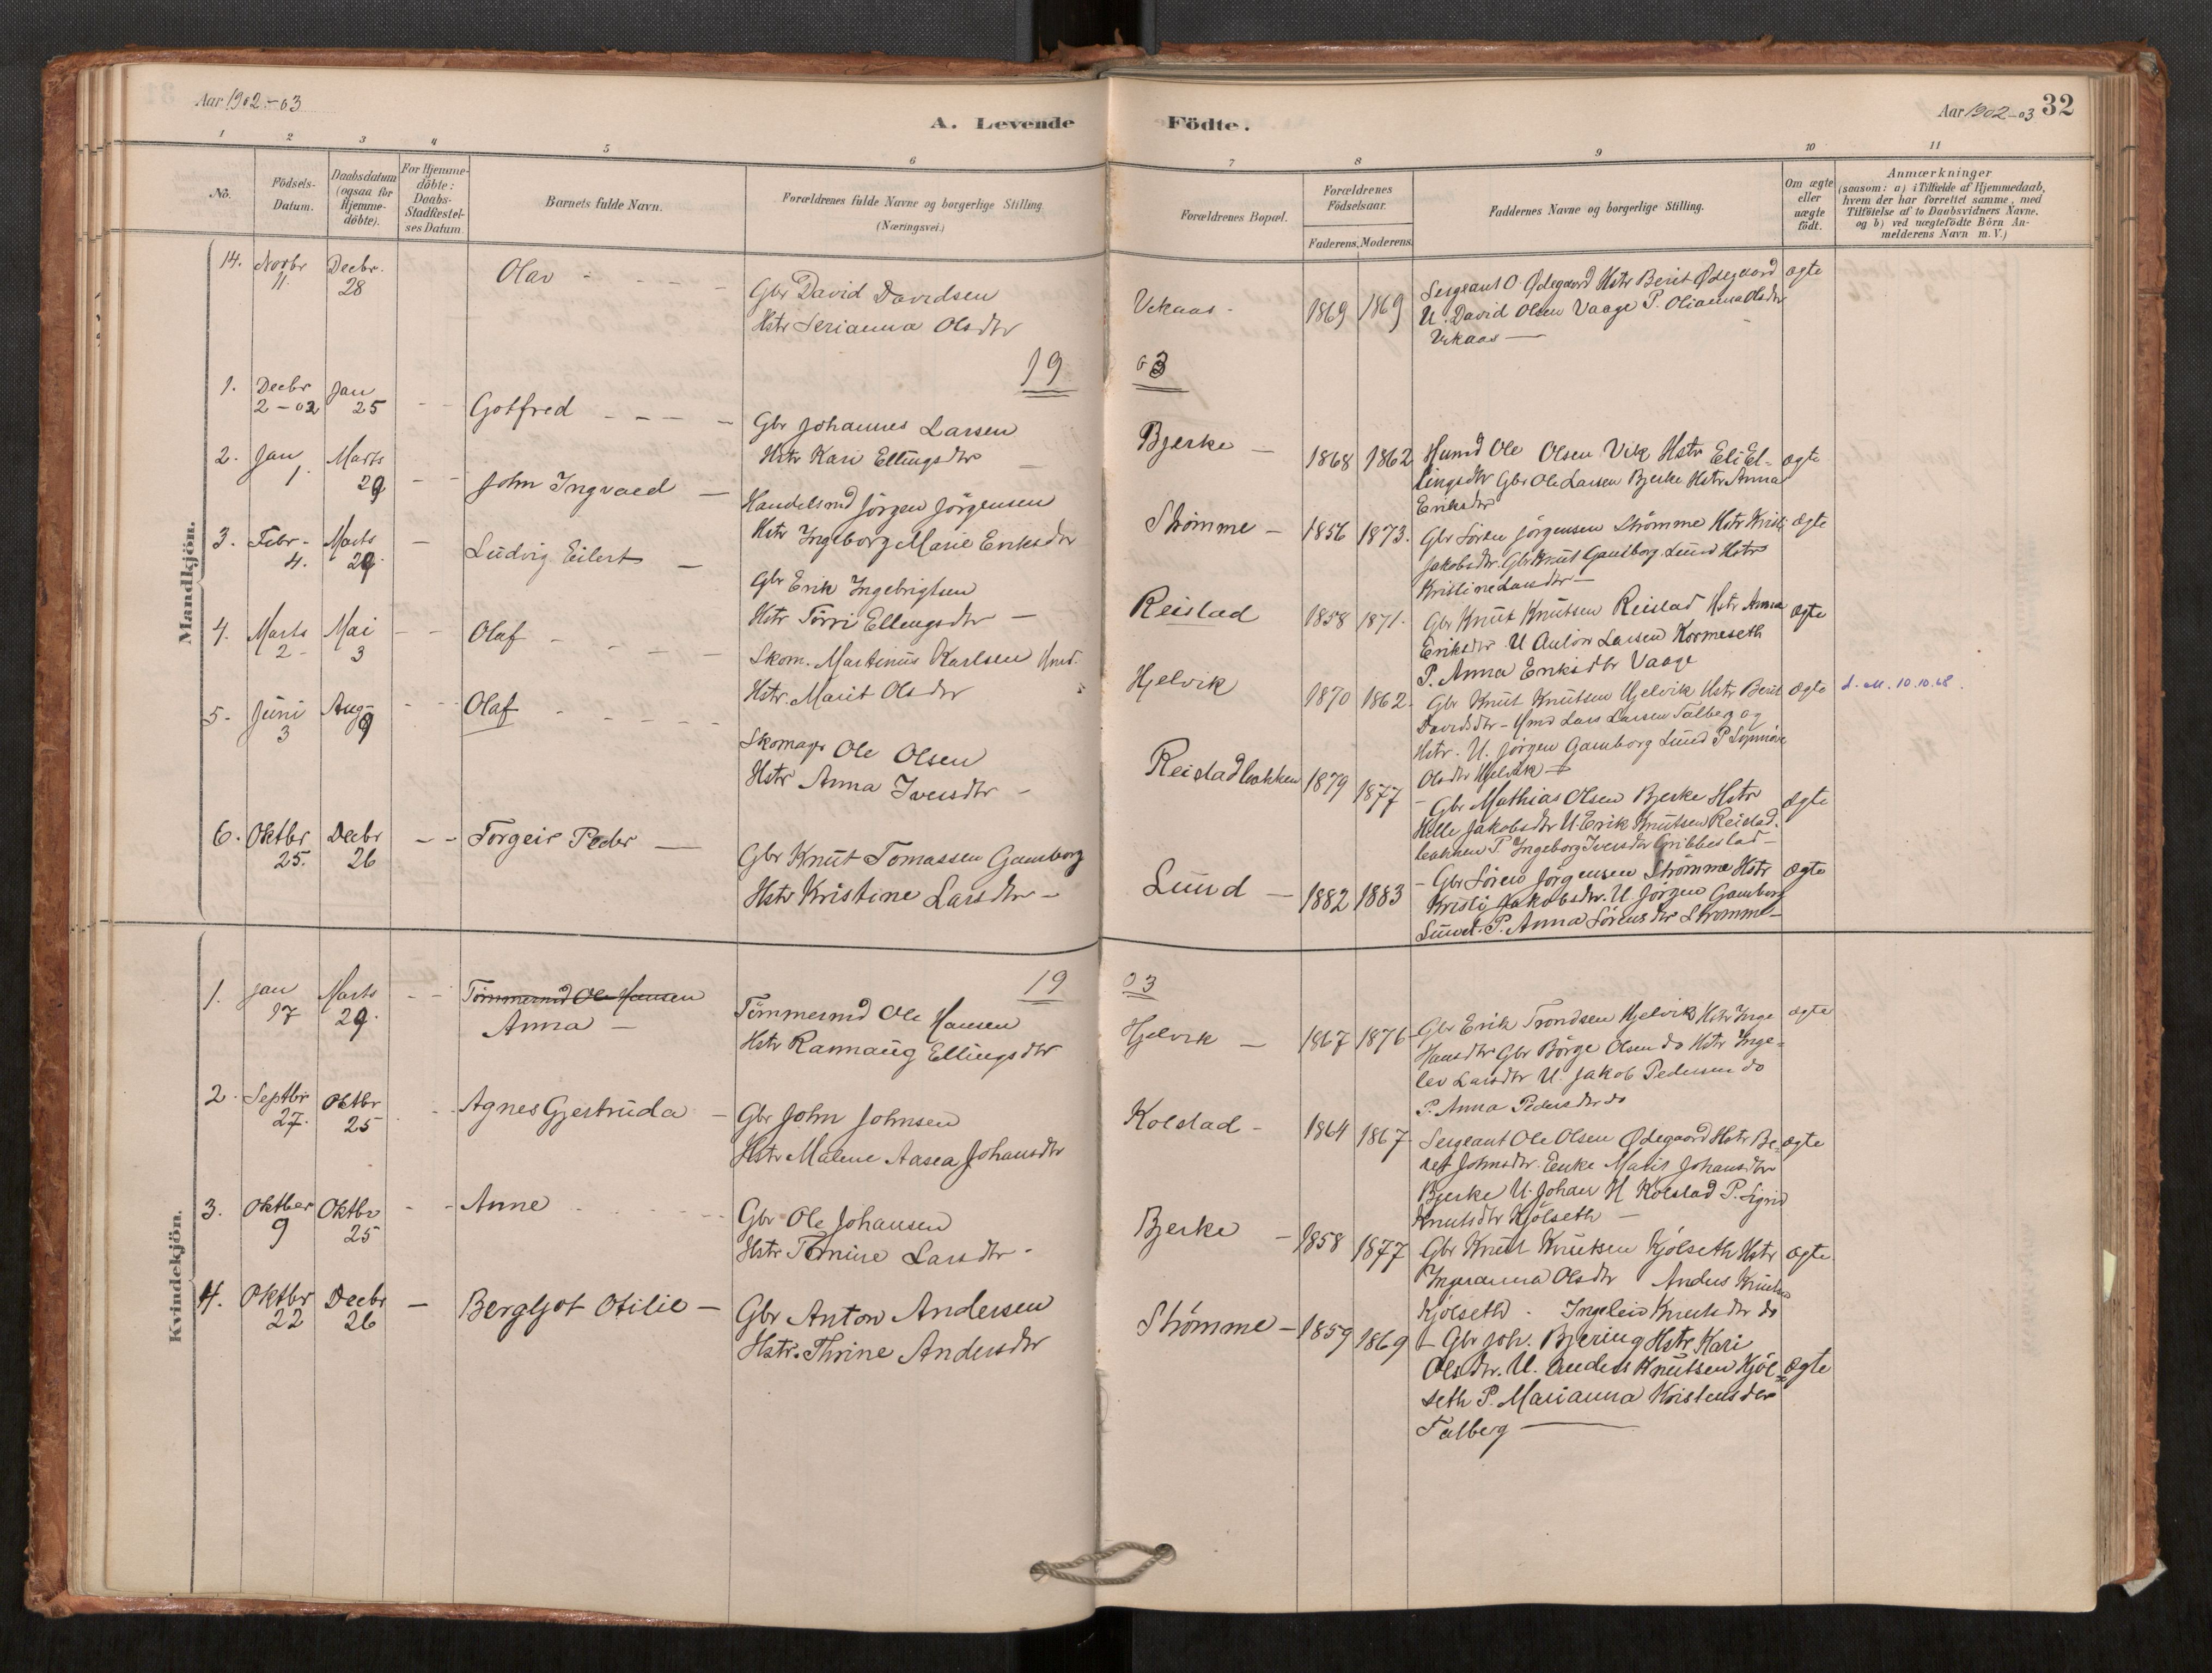 Aar 1902-03
A. Levende Födte.
Aar 1902-03 32
1 2 3 4 5 6 7 8 9 10 11
No.
Födsels-Datum.
Daabsdatum (ogsaa for Hjemme-döbte).
For Hjemme-döbte: Daabs-Stadfæstel-ses Datum.
Barnets fulde Navn.
Forældrenes fulde Navne og borgerlige Stilling.
(Næringsvei.)
Forældrenes Bopæl.
Forældrenes Födselsaar.
Faderens. Moderens.
Faddernes Navne og borgerlige Stilling.
Om ægte eller uægte födt.
Anmærkninger
(saasom: a) i Tilfælde af Hjemmedaab,
hvem der har forrettet samme, med
Tilföielse af to Daabsvidners Navne.
og b) ved uægtefödte Börn An-
melderens Navn m. V.)
Mandkjön.
14. Novbr 11. Decbr. 28 Olav
Gbr David Davidsen
Hstr Serianna Olsdtr
Vikaas 1869 1869
Sergeant O. Ødegaard Hstr Berit Ødegaard
U. David Olsen Vaage P. Olianna Olsdtr
Vikaas
ægte
19 03
1. Decbr 2-02 Jan 25 Gotfred
Gbr Johannes Larsen
Hstr Kari Ellingsdtr
Bjerke 1868 1862
Husmd Ole Olsen Vik Hstr Eli El-
lingsdtr Gbr Ole Larsen Bjerke Hstr Anna
Eriksdtr
ægte
2. Jan 1. Marts 29 John Ingvald
Handelsmd Jörgen Jörgensen
Hstr Ingeborg Marie Eriksdtr
Strømme 1856 1873.
Gbr Sören Jörgensen Strømme Hstr Kristi
Jakobsdtr. Gbr Knut Gamborg Lund Hstr
Kristine Larsdtr
ægte
3. Febr. 4. Marts 29. Ludvig Eilert
Gbr Erik Ingebrigtsen
Hstr Törri Ellingsdtr
Reistad 1858 1871.
Gbr Knut Knutsen Reistad Hstr Anna
Eriksdtr U Anton Larsen Kormeseth
P. Anna Eriksdtr Vaage
ægte
4. Marts 2 Mai 3 Olaf
Skom. Martinus Karlsen Hmd.
Hstr. Marit Olsdtr
Hjelvik 1870 1862.
Gbr Knut Knutsen Hjelvik Hstr Berit
Davidsdtr - Hmd Lars Larsen Talberg og
Hstr. U. Jörgen Gamborg Lund P
Olsdtr Hjelvik
ægte
d. M. 10.10.68.
5. Juni 3 Aug. 9 Olaf
Skomagr Ole Olsen
Hstr Anna Iversdtr
Reistadbakken 1879 1877
Gbr Mathias Olsen Bjerke Hstr
Hille Jakobsdtr U. Erik Knutsen Reistad-
bakken P Ingeborg Iversdtr Gribbestad
ægte
6. Oktbr 25. Decbr 26 Torgeir Peder
Gbr Knut Tomassen Gamborg
Hstr Kristine Larsdtr
Lund 1882 1883
Gbr Sören Jörgensen Strømme Hstr
Kristi Jakobsdtr. U. Jörgen Gamborg
Lund. P. Anna Sörensdtr Strømme
ægte
Kvindekjön.
19 03
1. Jan 17 Marts 29. Tömmermd Ole Hansen
Anna
Tömmermd Ole Hansen
Hstr Rannaug Ellingsdtr
Hjelvik 1867 1876
Gbr Erik Trondsen Hjelvik Hstr Inge
Hansdtr Gbr Börge Olsen do Hstr Inge-
lev Larsdtr U. Jakob Pedersen do
P. Anna Pedersdtr do
ægte
2. Septbr 27. Oktbr 25 Agnes Gjertruda
Gbr John Johnsen
Hstr Malene Aasea Johansdtr
Kolstad 1864 1867.
Sergeant Ole Olsen Ødegaard Hstr Be-
ret Johnsdtr. Enke Marit Johansdtr
Bjerke U. Johan H Kolstad P. Sigrid
Knutsdtr Kjölseth
ægte
3. Oktber 9 Oktbr 25 Anne
Gbr Ole Johansen
Hstr Tomine Larsdtr
Bjerke 1858 1877
Gbr Knut Knutsen Kjölseth Hstr
Ingeranna Olsdtr Anders Knutsen
Kjölseth. Ingeleiv Knutsdtr do
ægte
4. Oktbr 22 Decbr 26 Bergljot Otilie
Gbr Anton Andersen
Hstr. Thrine Andersdtr
Strømme 1859 1869
Gbr Joh. Bjering Hstr Kari
Olsdtr. U. Anders Knutsen Kjöl-
seth P. Marianna Kristensdtr
Talberg
ægte